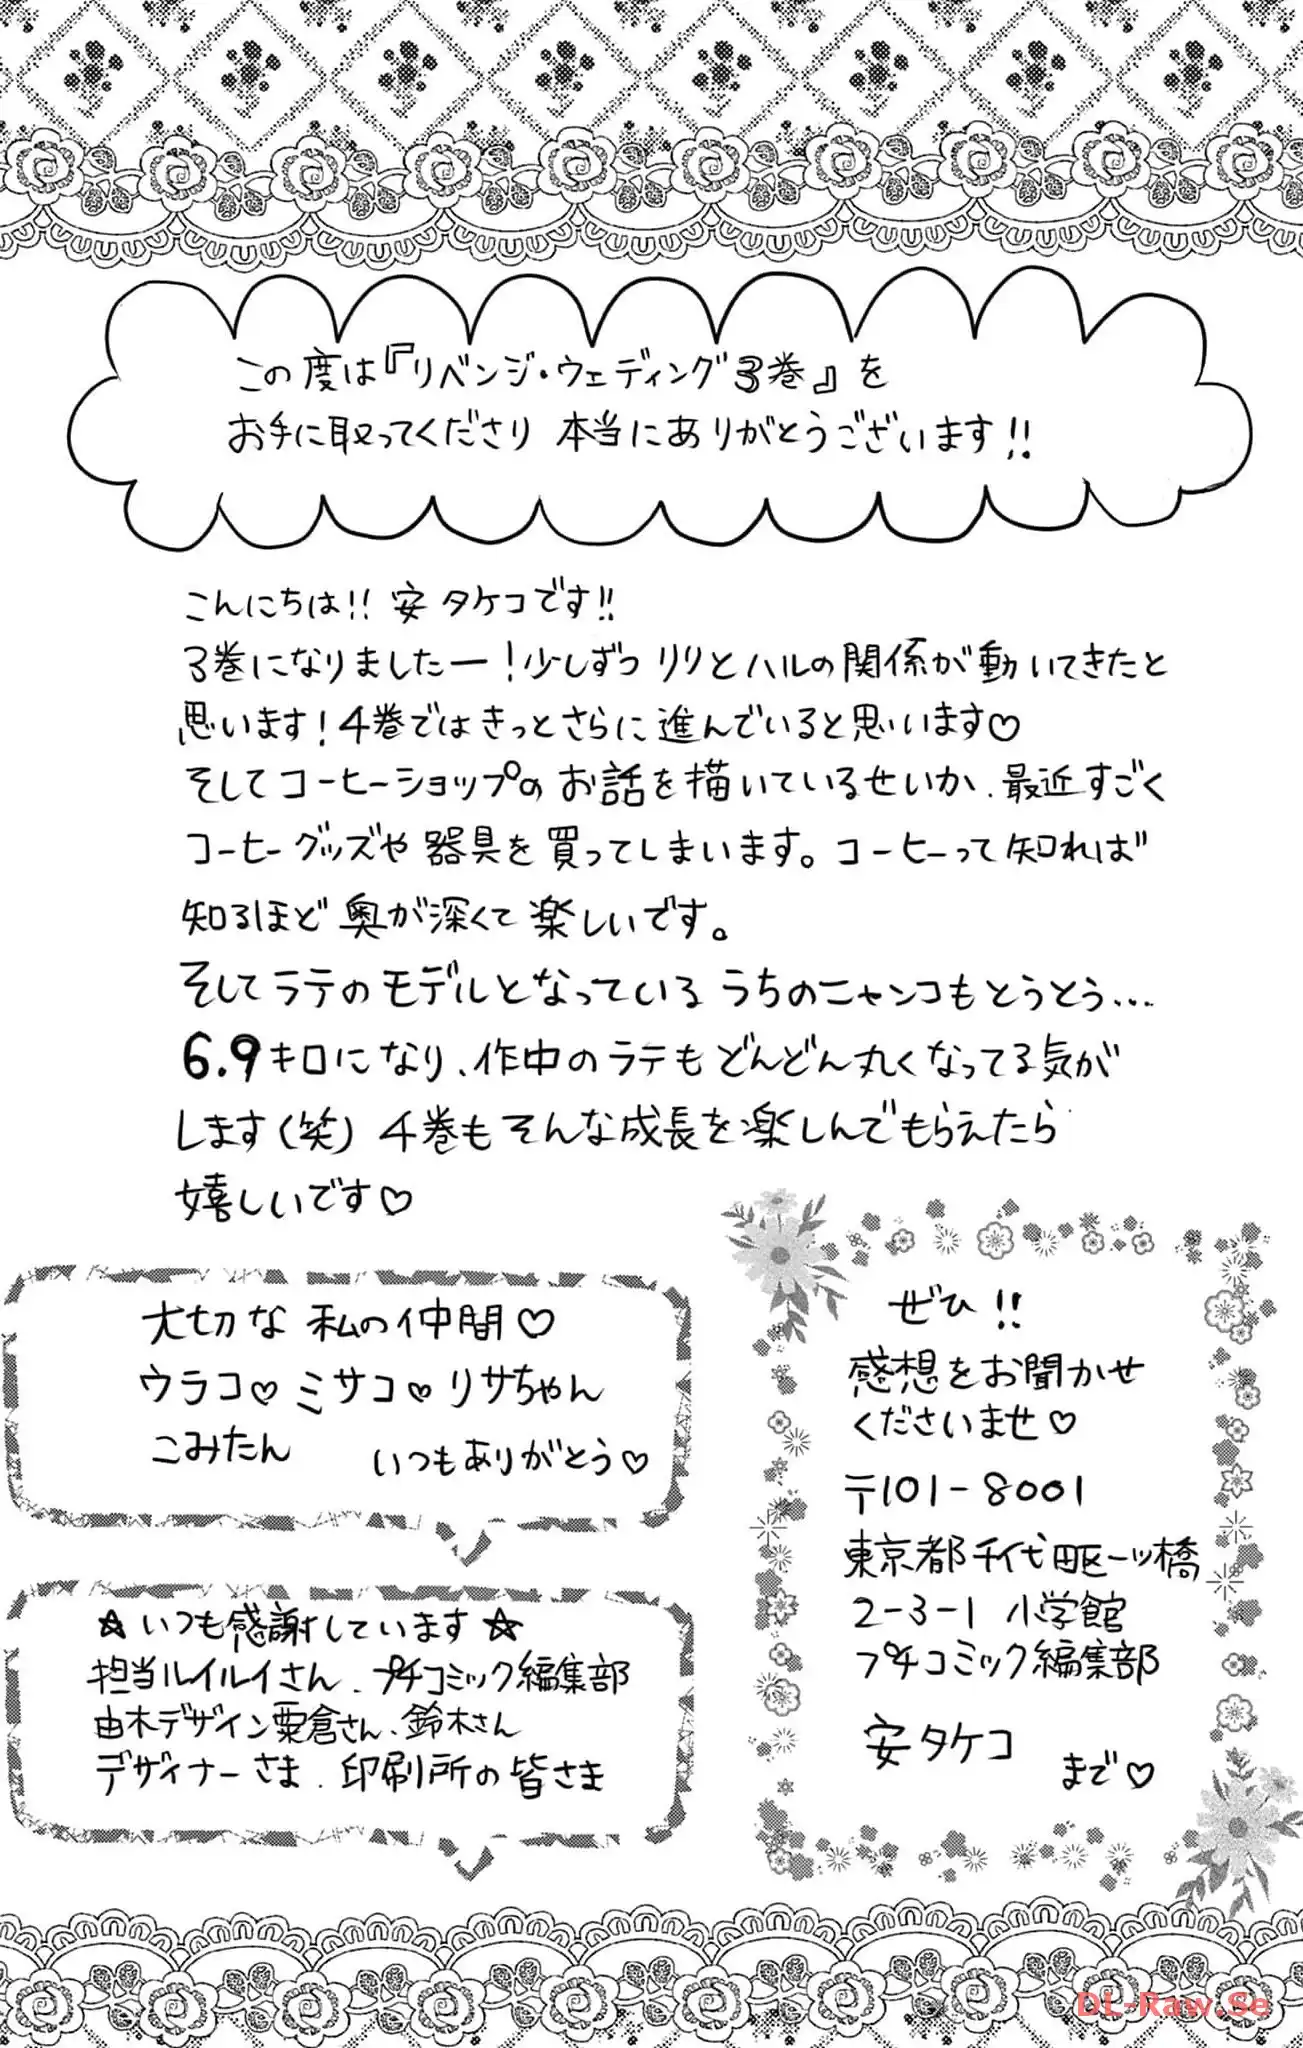 この度は『リベンジ・ウェディング3巻』を
お手に取ってくださり 本当にありがとうございます!!
こんにちは!! 安タケコです!!
3巻になりましたー!少しずつ リリとハルの関係が動いてきたと
思います!4巻ではきっとさらに進んでいると思います♡
そしてコーヒーショップのお話を描いているせいか、最近すごく
コーヒーグッズや器具を買ってしまいます。コーヒーって知れば
知るほど奥が深くて楽しいです。
そしてラテのモデルとなっているうちのニャンコもとうとう…
6.9キロになり、作中のラテもどんどん丸くなってる気が
します(笑) 4巻もそんな成長を楽しんでもらえたら
嬉しいです♡
大切な私の仲間♡
ウラコ♡ミサコ♡リサちゃん
こみたん いつもありがとう♡
☆いつも感謝しています☆
担当ルイルイさん、プチコミック編集部
由木デザイン粟倉さん、鈴木さん
デザイナーさま、印刷所の皆さま
ぜひ!!
感想をお聞かせ
くださいませ♡
〒101-8001
東京都千代田区一ツ橋
2-3-1 小学館
プチコミック編集部
安タケコ
まで♡
DL-Raw.Se